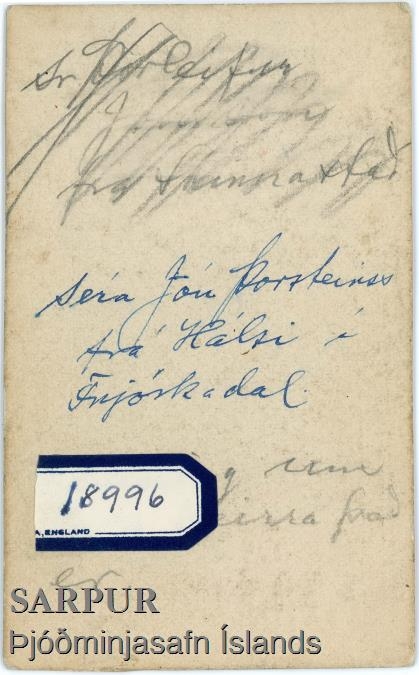 sr Þorleifur
Jónsson
frá Skinnastað
séra Jón Þorsteinss
frá Hálsi í
Fnjóskadal.
um
18996
A, ENGLAND
það
er
SARPUR
Þjóðminjasafn Íslands